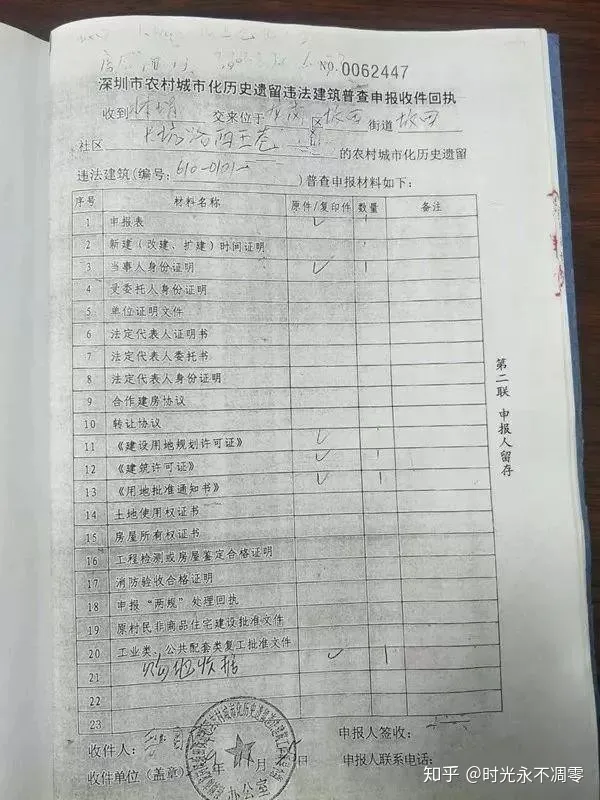 NO.0062447
深圳市农村城市化历史遗留违法建筑普查申报收件回执
收到 交来位于 区 坂田 街道 坂田
社区 的农村城市化历史遗留
违法建筑(编号: 610-0101 )普查申报材料如下:
序号 材料名称 原件/复印件 数量 备注
1 申报表 ✓
2 新建(改建、扩建)时间证明
3 当事人身份证明 ✓ 1
4 受委托人身份证明
5 单位证明文件
6 法定代表人证明书
7 法定代表人委托书
8 法定代表人身份证明
9 合作建房协议
10 转让协议
11 《建设用地规划许可证》 ✓ 1
12 《建筑许可证》 ✓ 1
13 《用地批准通知书》 ✓ 1
14 土地使用权证书
15 房屋所有权证书
16 工程检测或房屋鉴定合格证明
17 消防验收合格证明
18 申报“两规”处理回执
19 原村民非商品住宅建设批准文件
20 工业类、公共配套类复工批准文件
21 收据 ✓ 1
22
23
收件人: 申报人签收:
收件单位(盖章) 年 月 日 申报人联系电话:
办公室
第二联 申报人留存
知乎 @时光永不凋零